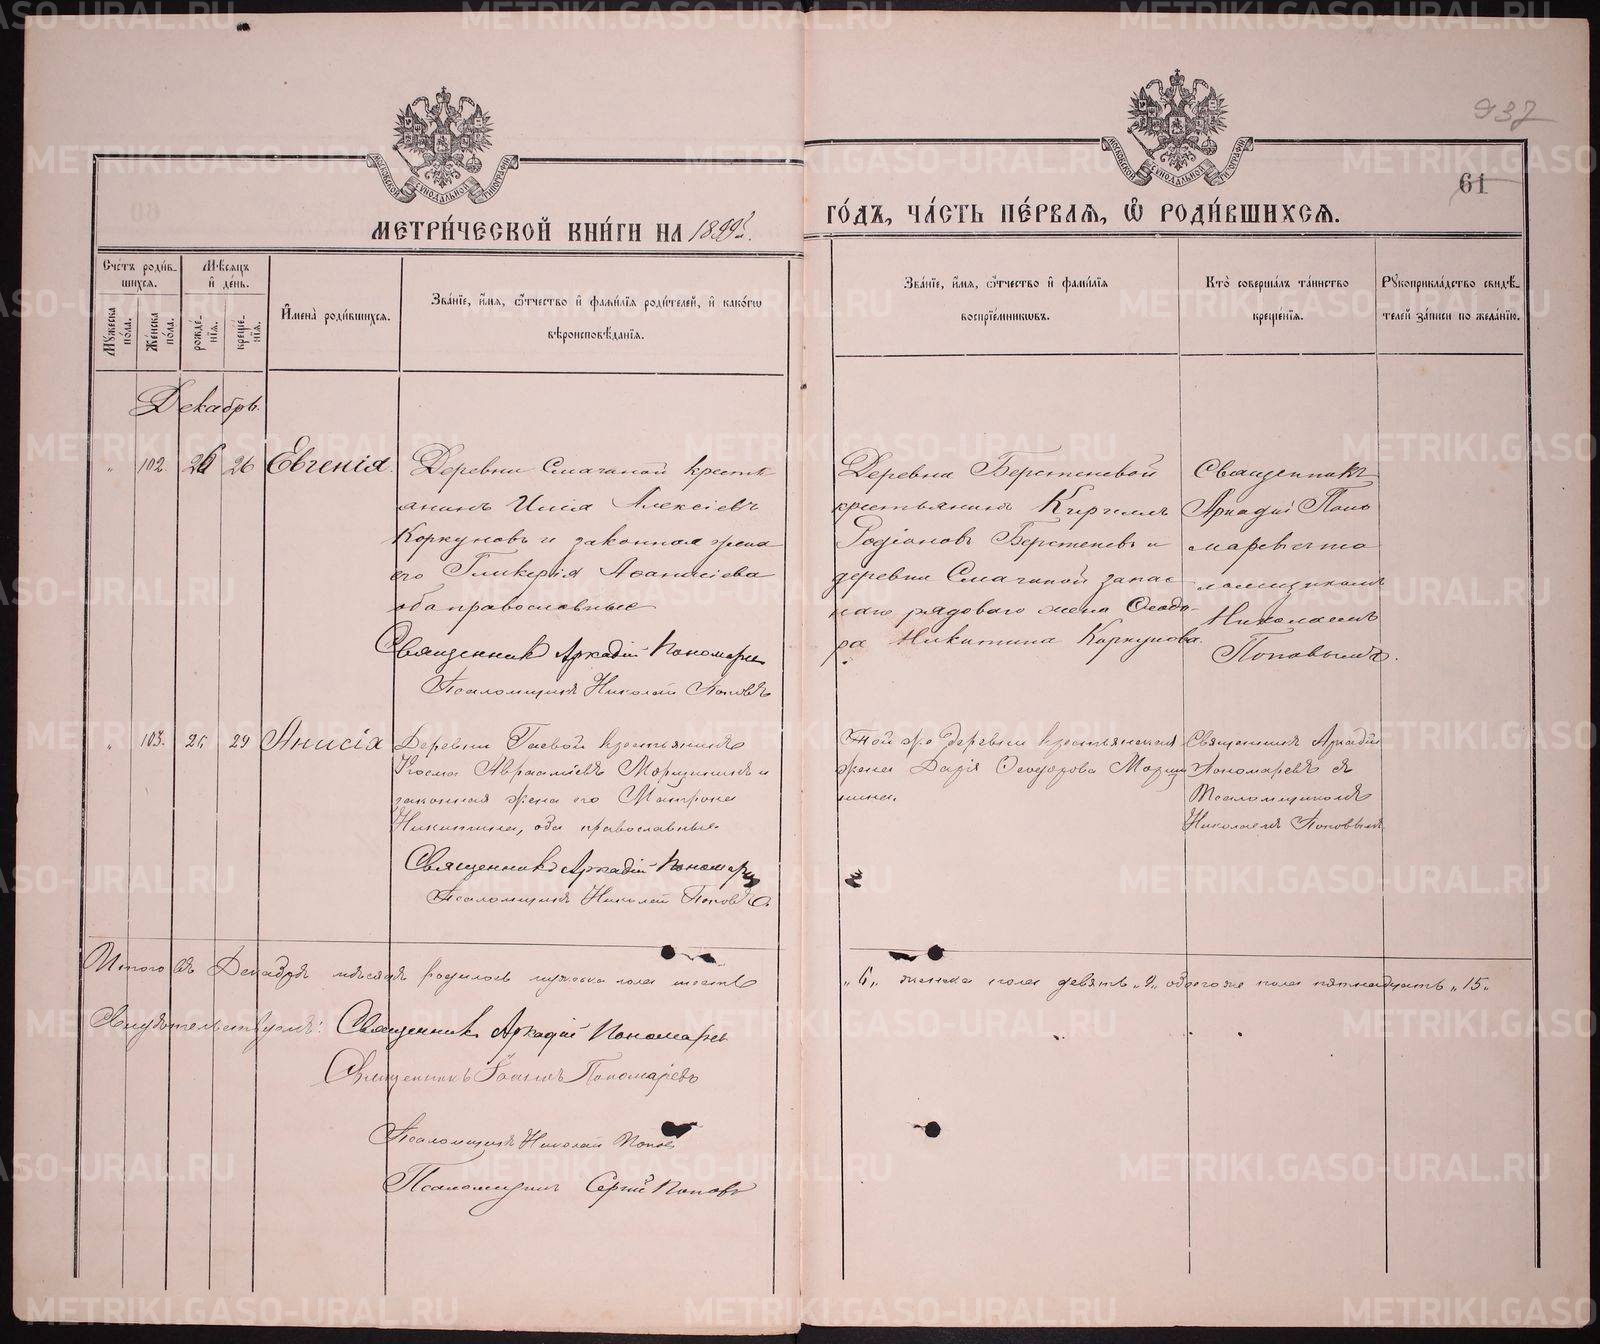 937
61
МЕТРИ́ЧЕСКОЙ КНИ́ГИ НА 1899й.
ГО́ДЪ, ЧА́СТЬ ПЕ́РВАЯ, Ѽ РОДИ́ВШИХСЯ.
Сче́тъ роди́в-
шихся.
Мѣ́сяцъ
и҆ де́нь.
Мꙋ́жеска по́ла.
Же́нска по́ла.
рожде́нїя.
креще́нїя.
И҆мена̀ роди́вшихся.
Зва́нїе, и҆́мя, ѻ҆́тчество и҆ фами́лїя роди́телей, и҆ како́гѡ
вѣроисповѣ́данїя.
Зва́нїе, и҆́мя, ѻ҆́тчество и҆ фами́лїя
воспрїе́мниковъ.
Кто̀ соверша́лъ та́инство
креще́нїя.
Рꙋкоприкла́дство свидѣ́-
телей за́писи по жела́нїю.
Декабрь.
" 102. 26 26 Евгенія.
Деревни Смагиной кресть
янинъ Алексіевъ
Коркуновъ и законная жена
его Гликерія Аѳанасіева
оба православные
Священникъ Аркадій Пономаревъ
Псаломщикъ Николай Поповъ
Деревни Берстеневой
крестьянинъ Кириллъ
Родіоновъ Берстеневъ и
деревни Смагиной запас
наго рядоваго жена Ѳеодо-
ра Никитина Коркунова.
Священникъ
Аркадій Поно
маревъ съ пса
ломщикомъ
Николаемъ
Поповымъ.
" 103. 25 29 Анисія
Деревни Гаевой крестьянинъ
Косма Аврааміевъ Морщининъ и
законная жена его Матрона
Никитина, оба православные.
Священникъ Аркадій Пономаревъ
Псаломщикъ Николай Поповъ
Той же деревни крестьянская
жена Дарія Ѳеодорова Морщи
нина.
Священникъ Аркадій
Пономаревъ съ
Псаломщикомъ
Николаемъ Поповымъ
Итого въ Декабрѣ мѣсяцѣ родилось мужеска пола шесть
„6„ женска пола девять „9„ обоего же пола пятнадцать „15„
Свидѣтельствуемъ: Священникъ Аркадій Пономаревъ
Священникъ Іоаннъ Пономаревъ
Псаломщикъ Николай Поповъ
Псаломщикъ Сергій Поповъ
METRIKI.GASO-URAL.RU